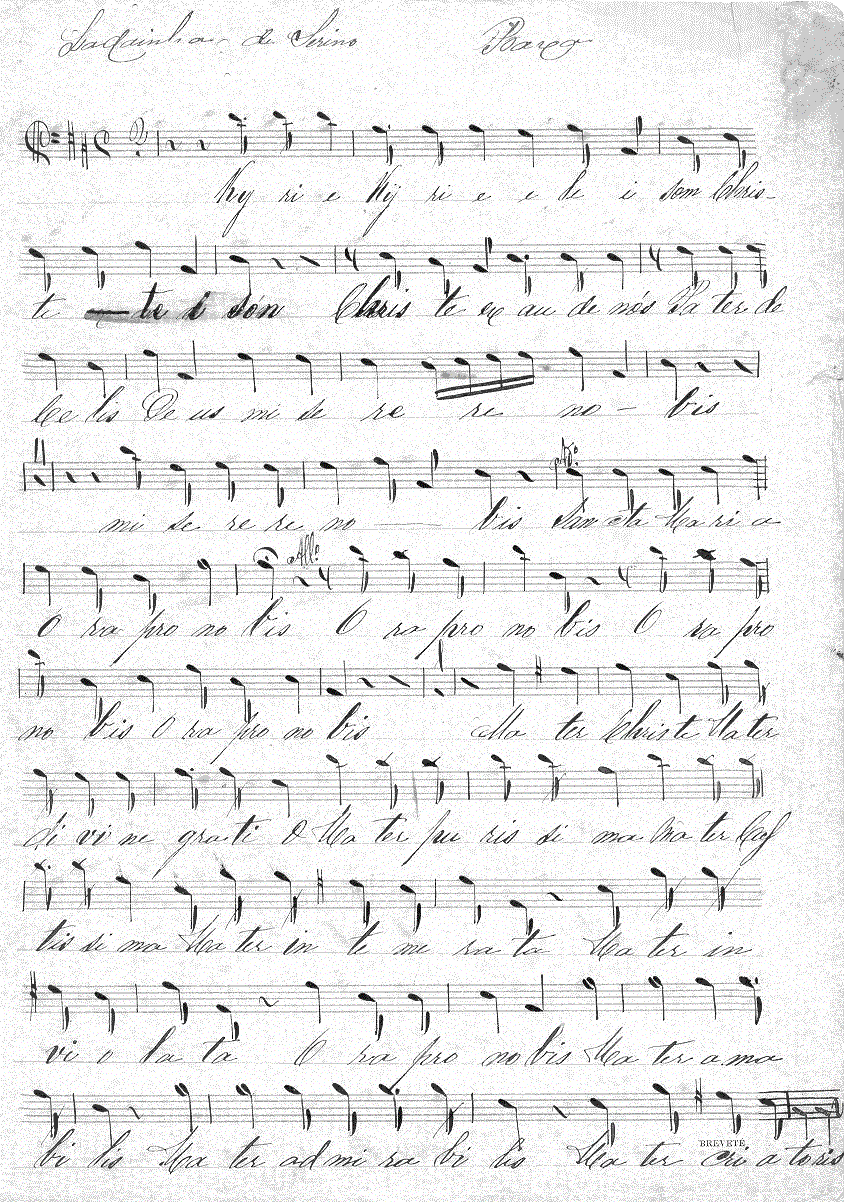 Ladainha de Serino Baixo
Ky ri e Ky ri e e le i som Chris-
te te i són Chris te ex au de nós Pa ter de
Ce lis De us mi se re re no - bis
mi se re re no bis San cta Ma ri a
All:º
O ra pro no bis O ra pro no bis O ra pro
no bis O ra pro no bis Ma ter Christe Ma ter
di vi ne gra ti O Ma ter pu ris si ma Ma ter Cas
tis si ma Ma ter in te me ra ta Ma ter in
vi o la ta O ra pro no bis Ma ter a ma
bi lis Ma ter ad mi ra bi lis Ma ter cri a to ris
BREVETÉ